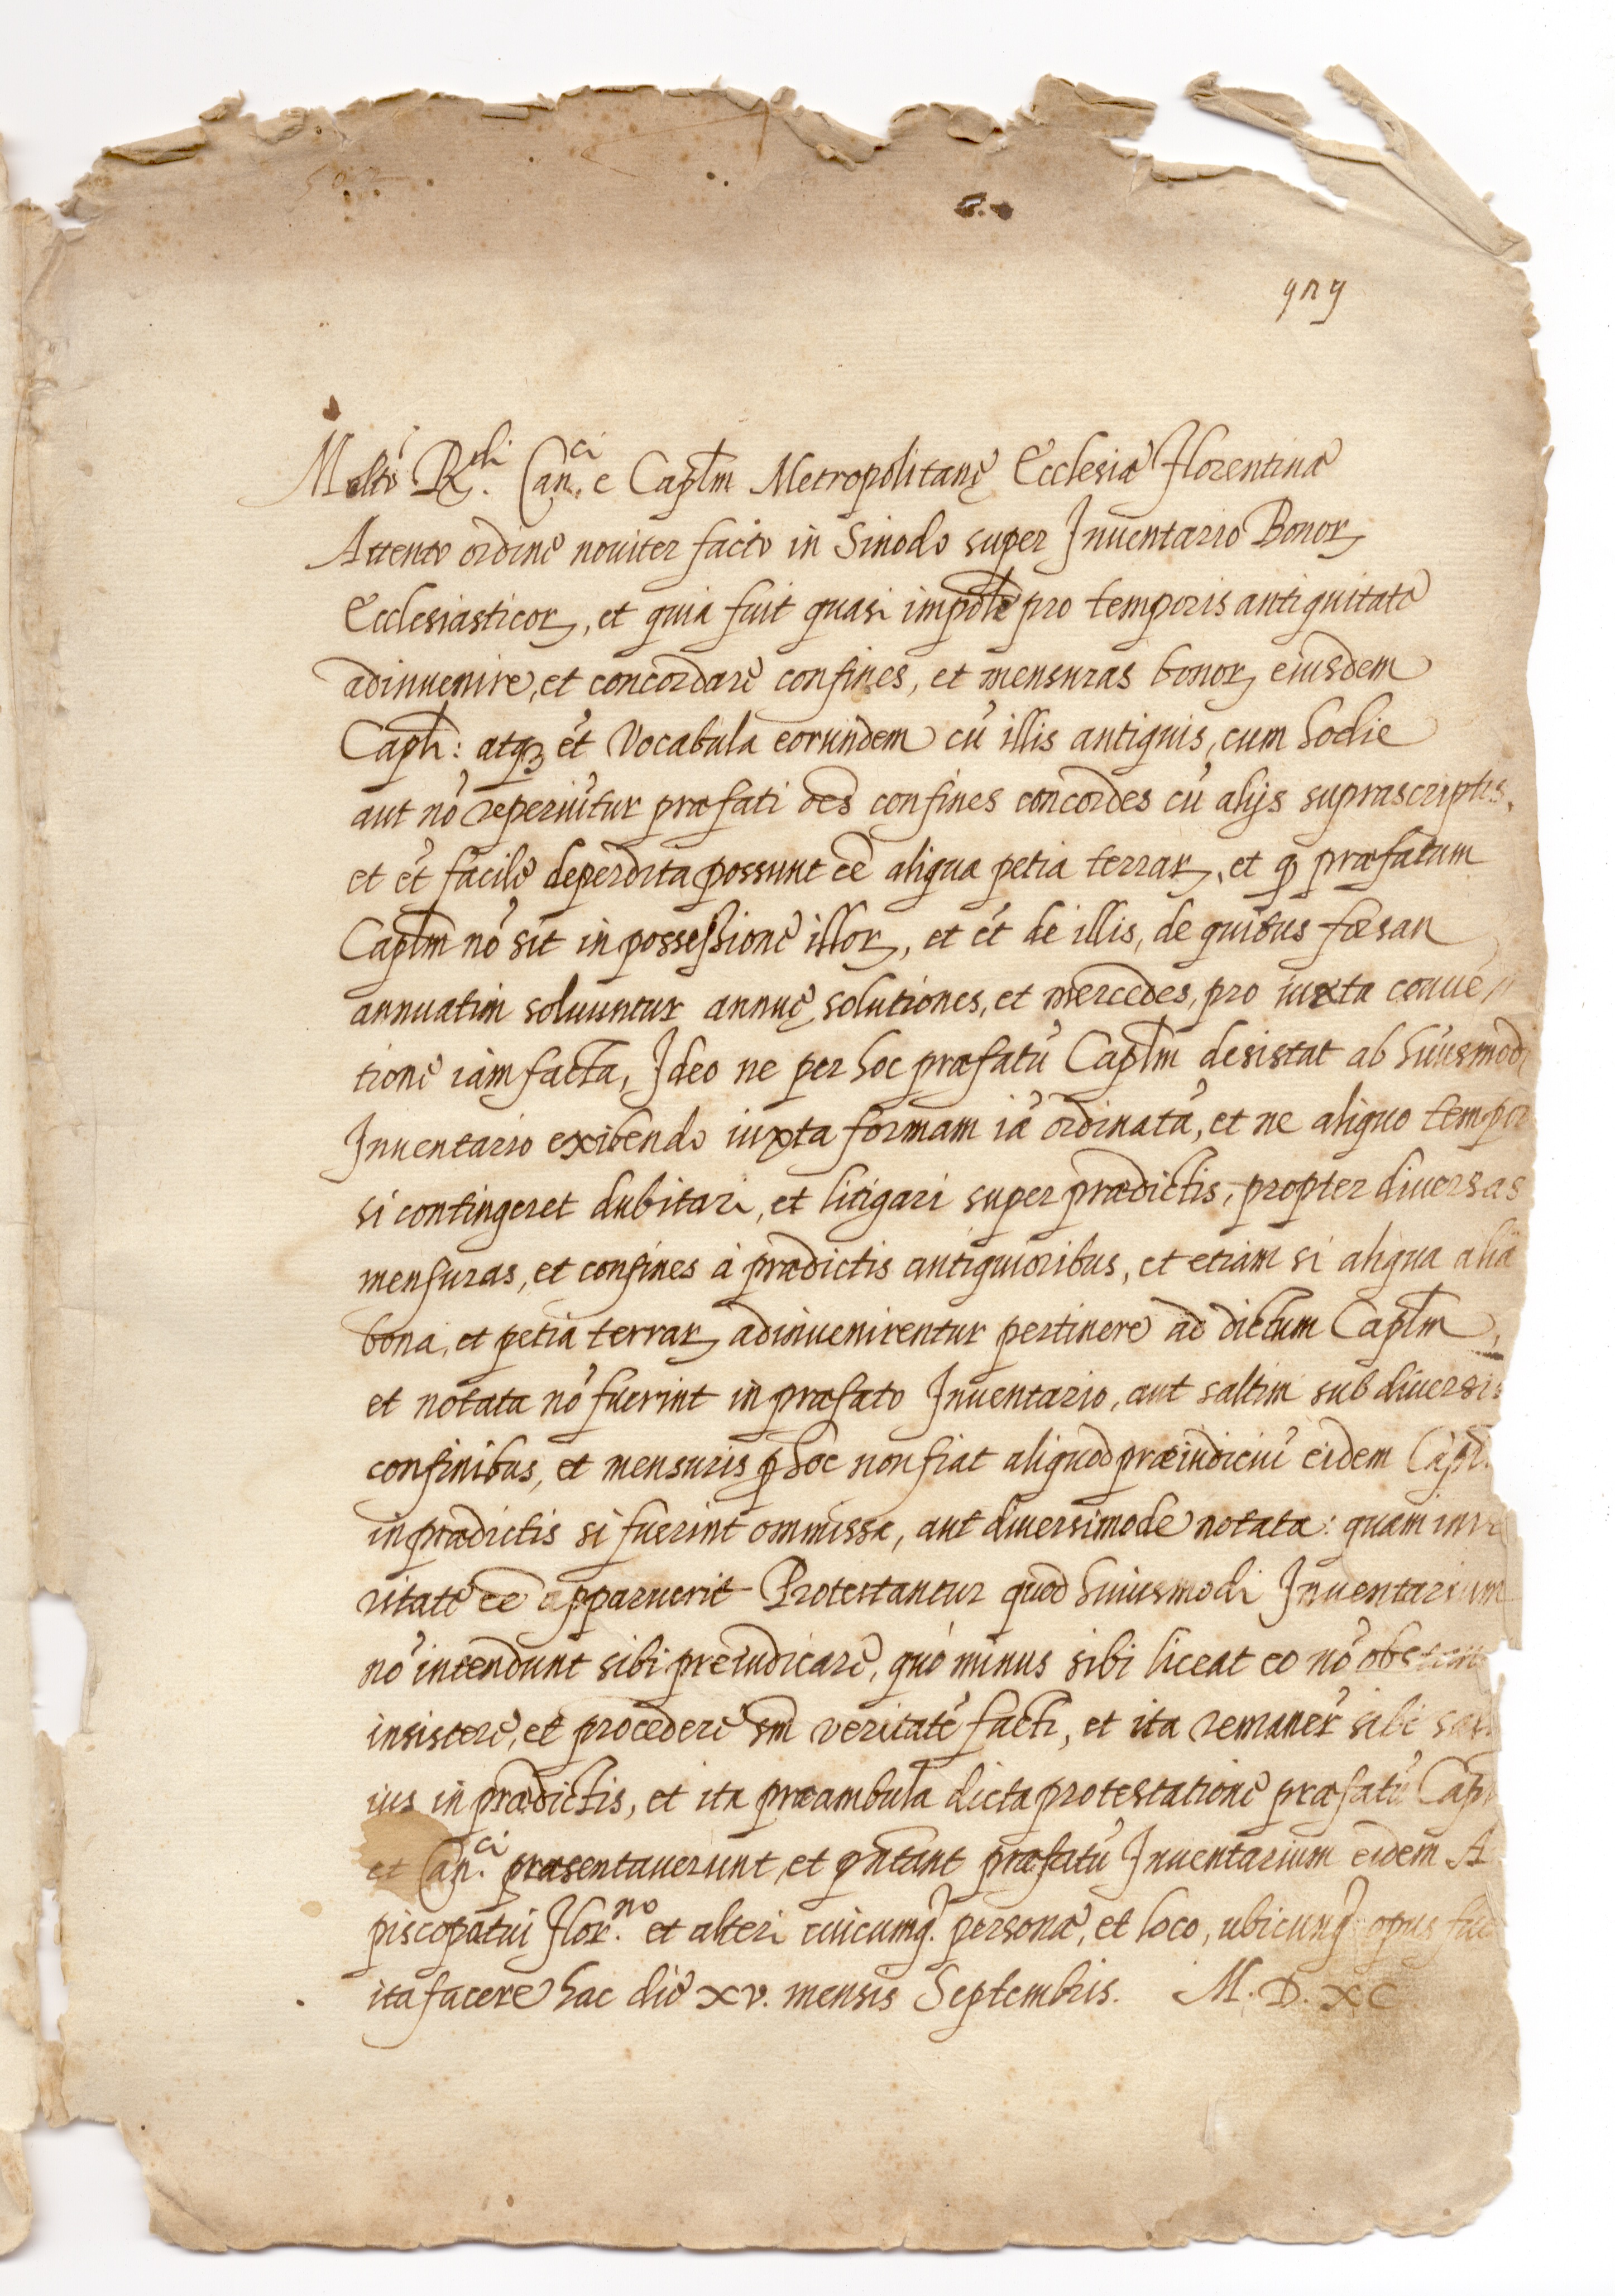 Molto R.di Can.ci e Caplm Metropolitanę Ecclesiæ Florentinæ
Attento ordine noviter facto in Sinodo super Inventario Bonor
Ecclesiasticor, et quia fuit quasi impole pro temporis antiquitate
adinuenire, et concordare confines, et mensuras bonor eiusdem
Capli: atq3 ēt Vocabula eorundem cū illis antiquis, cum hodie
aut nō reperiūtur præfati oēs confines concordes cū alijs suprascriptis,
et ēt facile deperdita possunt eē aliqua petia terrar, et q præfatum
Caplm nō sit in possessione illor, et ēt de illis, de quibus fœsan
annuatim soluuntur annuę solutiones, et mercedes, pro iuxta conuen
tione iam facta, Ideo ne per hoc præfatū Caplm desistat ab huiusmodi
Inuentario exibendo iuxta formam iā ordinatā, et ne aliquo tempor
si contingeret dubitari, et litigari super prædictis, propter diuersas
mensuras, et confines à prædictis antiquioribus, et etiam si aliqua alia
bona, et petia terrar adinuenirentur pertinere ad dictum Caplm,
et notata nō fuerint in præfato Inuentario, aut saltim sub diuersis
confinibus, et mensuris ꝑ hoc non fiat aliquod præiudiciū eidem Capl.
in prædictis si fuerint ommissa, aut diuersimode notata: quam in ve
ritate eē apparuerit Protestantur quod huiusmodi Inuentarium
nō intendunt sibi preiudicare, quò minus sibi liceat eo nō obstan
insistere, et procedere sm veritatē facti, et ita remaner sibi sal
ius in prædictis, et ita præambula dicta protestatione præfatū Capl
et Can.ci præsentauerunt, et pñtant præfatū Inuentarium eidem A
piscopatui Flor.no et alteri cuicumq. personæ, et loco, ubicunq opus fue
ita facere hac die xv. mensis Septembris. M.D.XC